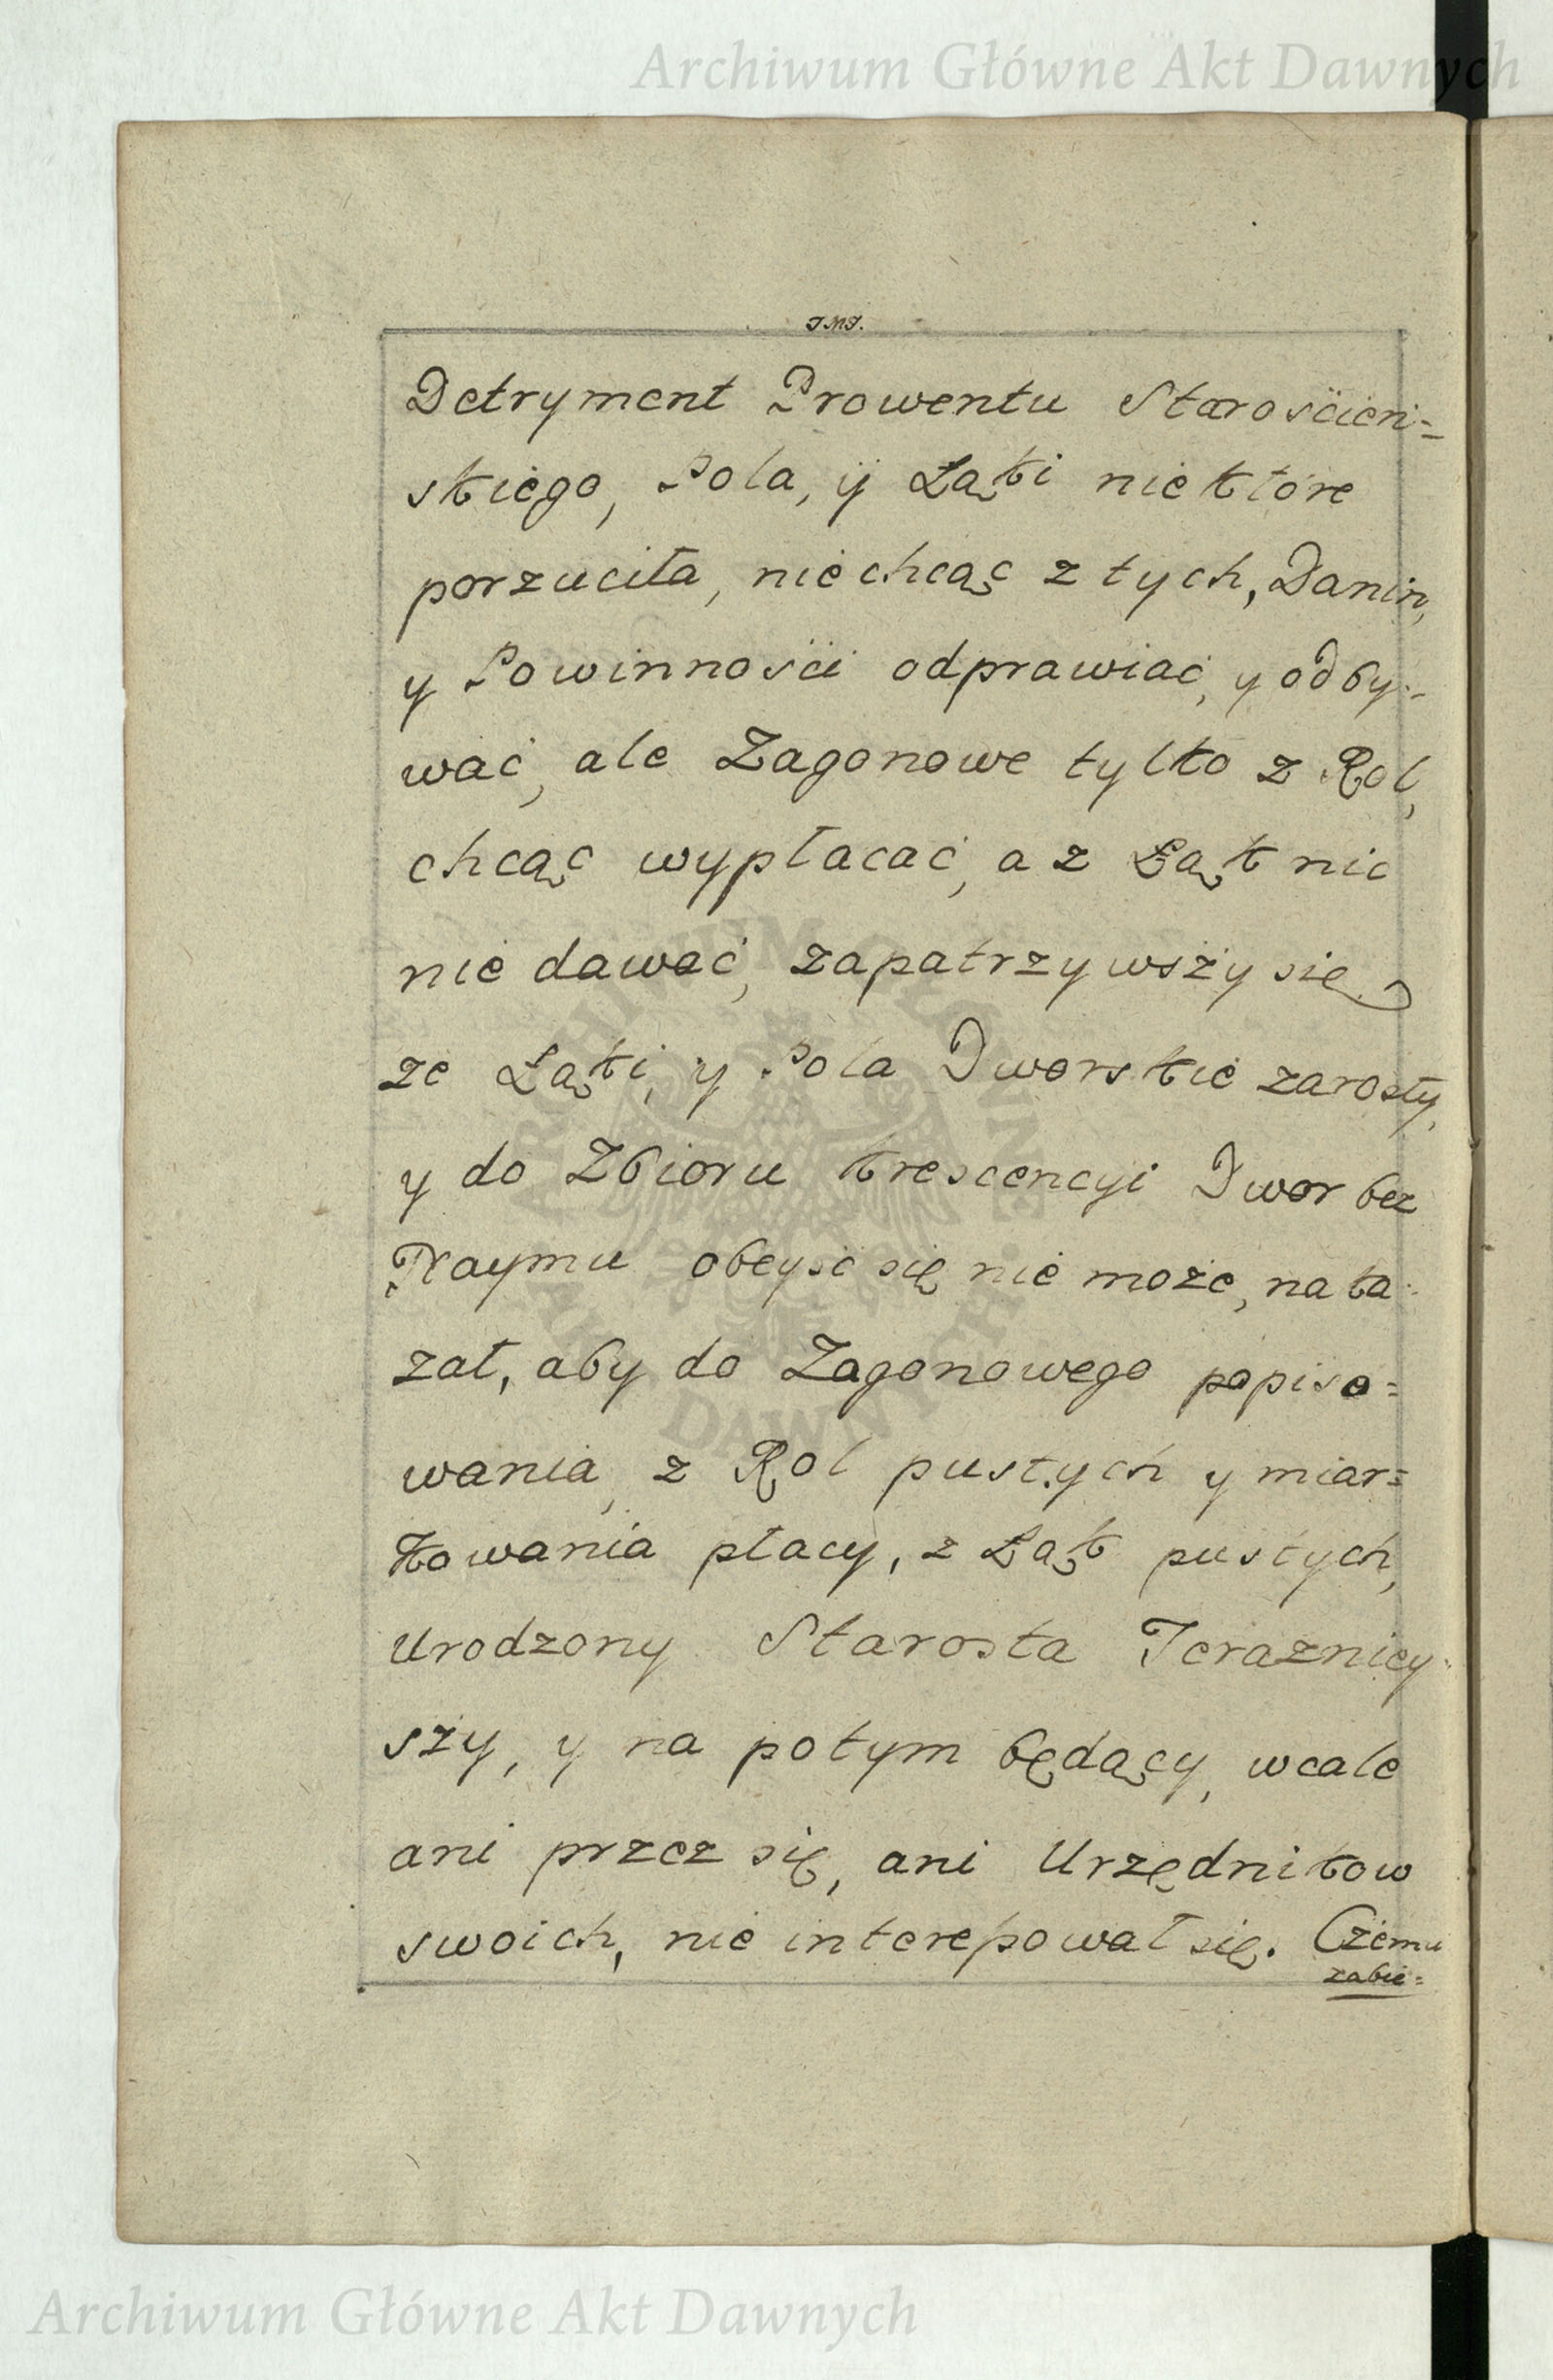 Archiwum Główne Akt Dawnych
J.M.J.
Detryment Prowentu Staroścień=
skiego, Pola, ÿ Łąki niektóre
porzuciła, niechcąc z tych, Danin,
y Powinności odprawiać, y odby=
wać, ale Zagonowe tylko z Rol,
chcąc wypłacać, a z Łąk nic
nie dawać, zapatrzywszy się
ze Łąki, y Pola Dworskie zarosły,
y do Zbioru krescencyi Dwor bez
Naymu obeyść się nie może, naka=
zał, aby do Zagonowego popiso=
wania, z Rol pustych y miar=
kowania płacy, z Łąk pustych,
Urodzony Starosta Terazniey=
szy, y na potym będący, wcale
ani przez się, ani Urzędnikow
swoich, nie interepował się. Czemu
zabie=
ARCHIWUM GŁÓWNE AKT DAWNYCH
Archiwum Główne Akt Dawnych